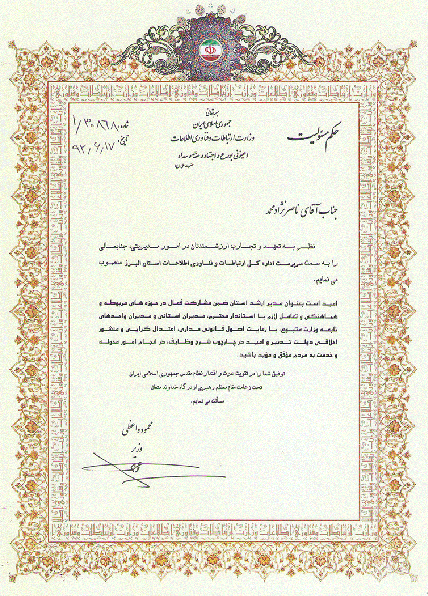 بسمه تعالی
جمهوری اسلامی ایران
وزارت ارتباطات و فناوری اطلاعات
حکم مسئولیت
شماره ۱/۳۰۸۶۸
تاریخ ۹۲/۶/۱۷
جناب آقای ناصر نژاد محمد
نظر به تعهد و تجارب ارزشمندتان در امور مدیریتی، جنابعالی
را به سمت سرپرست اداره کل ارتباطات و فناوری اطلاعات استان البرز منصوب
می نمایم.
امید است بعنوان مدیر ارشد استان ضمن مشارکت فعال در حوزه های مربوطه و
هماهنگی و تعامل لازم با استاندار محترم، مدیران استانی و مدیران واحدهای
تابعه وزارت متبوع، با رعایت اصول قانونی مداری، اعتدال گرایی و منشور
اخلاقی دولت تدبیر و امید در چارچوب شرح وظایف، در انجام امور محوله
و خدمت به مردم موفق و موید باشید.
توفیق شما را در تقویت عزت و اقتدار نظام مقدس جمهوری اسلامی ایران
تحت زعامت مقام معظم رهبری از درگاه خداوند متعال
مسألت می نمایم.
محمود واعظی
وزیر